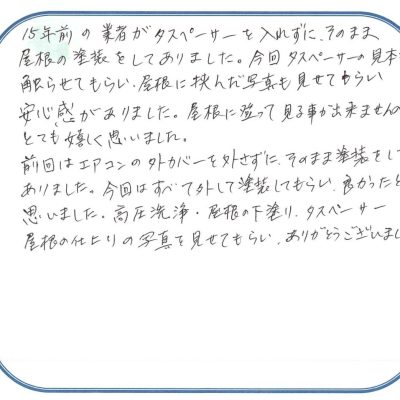 15年前の業者がタスペーサーを入れずに、そのまま
屋根の塗装をしてありました。今回タスペーサーの見本を
触らせてもらい、屋根に挟んだ写真も見せてもらい
安心感がありました。屋根に登って見る事が出来ませんの
とても嬉しく思いました。
前回はエアコンの外カバーを外さずに、そのまま塗装をして
ありました。今回はすべて外して塗装してもらい、良かったと
思いました。高圧洗浄・屋根の下塗り、タスペーサー
屋根の仕上りの写真を見せてもらい、ありがとうございまし